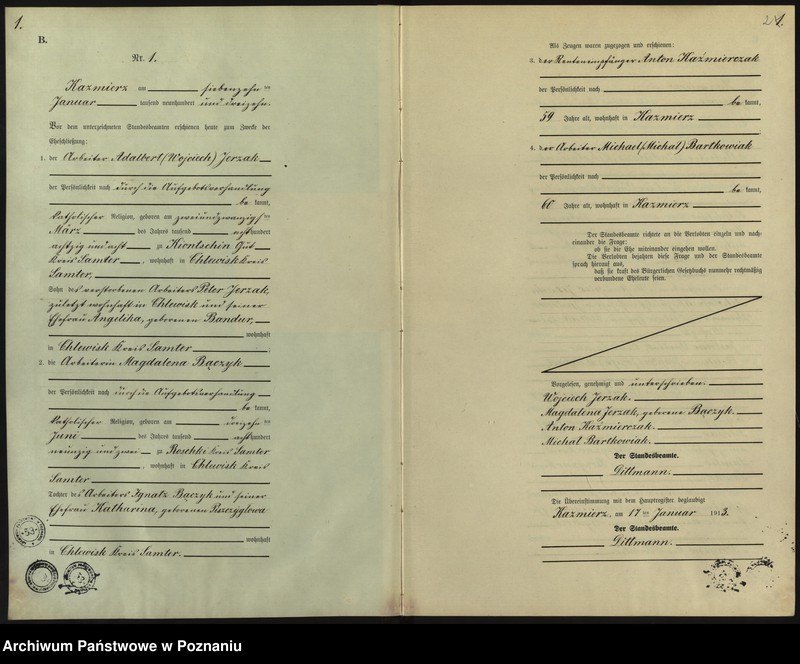 1.
B.
Nr. 1.
Kazmierz am siebenzehn ten
Januar tausend neunhundert und dreizehn.
Vor dem unterzeichneten Standesbeamten erschienen heute zum Zwecke der
Eheschließung:
1. der Arbeiter Adalbert (Wojciech) Jerzak
der Persönlichkeit nach durch die Aufgebotsverhandlung
be kannt,
katholischer Religion, geboren am zweiundzwanzigs ten
März des Jahres tausend achthundert
achtzig und acht zu Kiontschin Gut
Kreis Samter, wohnhaft in Chlewisk Kreis
Samter,
Sohn des verstorbenen Arbeiters Peter Jerzak,
zuletzt wohnhaft in Chlewisk und seiner
Ehefrau Angelika, geborenen Bandur,
wohnhaft
in Chlewisk Kreis Samter.
2. die Arbeiterin Magdalena Bączyk
der Persönlichkeit nach durch die Aufgebotsverhandlung
be kannt,
katholischer Religion, geboren am dreizehn ten
Juni des Jahres tausend achthundert
neunzig und zwei zu Roschki Kreis Samter
, wohnhaft in Chlewisk Kreis
Samter
Tochter des Arbeiters Ignatz Bączyk und seiner
Ehefrau Katharina, geborenen Pszczyglowa
wohnhaft
in Chlewisk Kreis Samter.
53
1.
Als Zeugen waren zugezogen und erschienen:
3. der Rentenempfänger Anton Kaźmierczak
der Persönlichkeit nach
be kannt,
59 Jahre alt, wohnhaft in Kazmierz
4. der Arbeiter Michael (Michał) Bartkowiak
der Persönlichkeit nach
be kannt,
60 Jahre alt, wohnhaft in Kazmierz
Der Standesbeamte richtete an die Verlobten einzeln und nach-
einander die Frage:
ob sie die Ehe miteinander eingehen wollen.
Die Verlobten bejahten diese Frage und der Standesbeamte
sprach hierauf aus,
daß sie kraft des Bürgerlichen Gesetzbuchs nunmehr rechtmäßig
verbundene Eheleute seien.
Vorgelesen, genehmigt und unterschrieben.
Wojciech Jerzak.
Magdalena Jerzak, geborene Bączyk.
Anton Kaźmierczak.
Michał Bartkowiak.
Der Standesbeamte.
Dittmann.
Die Übereinstimmung mit dem Hauptregister beglaubigt
Kazmierz, am 17 ten Januar 1913.
Der Standesbeamte.
Dittmann.
Archiwum Państwowe w Poznaniu